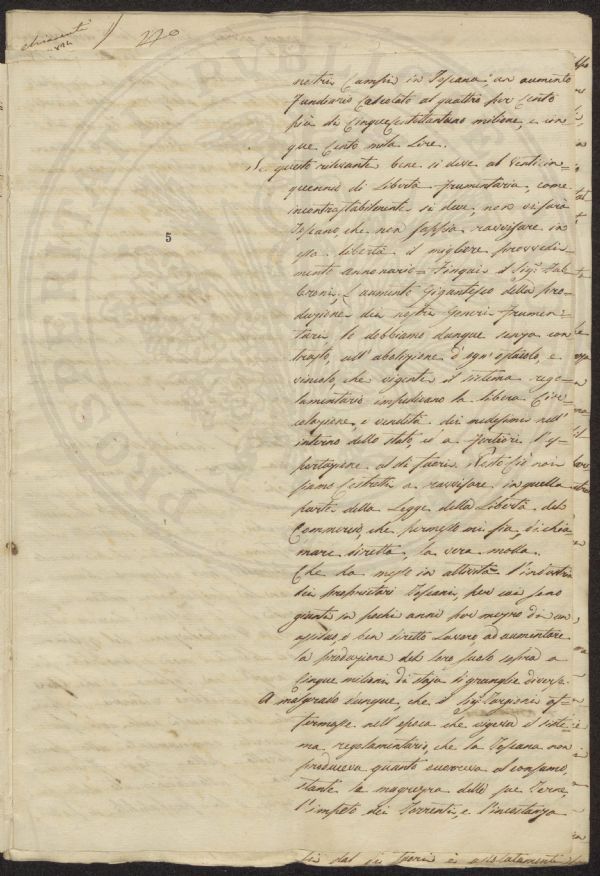 Chiarenti
1824
270
5
nostri Campi in Toscana un aumento
fundiario calcolato al quattro per Cento
più di Cinquecentottantuno milione, e cin-
que cento mila Lire.
questo rilevante bene si deve al venticin-
quennio di Libertà frumentaria, come
incontrastabilmente si deve, non vi sarà
Toscano, che non sappia ravvisare in
essa libertà il migliore provvedi-
mento annonario = Finqui il Sig. Fab-
broni. L'aumento gigantesco della pro-
duzione dei nostri generi frumen-
tari lo dobbiamo dunque senza con
trasto, all'abolizione d'ogn'ostacolo, e
vincolo, che vigente il sistema rego-
lamentario impedivano la libera Circo-
lazione, e vendita dei medesimi nell'
interno dello stato, e a fortiori l'es-
portazione al di fuori. Posto ciò noi
siamo costretti a ravvisare in quella
parte della Legge della Libertà del
Commercio, che permesso mi sia, di chia-
mare diretta, la vera molla.
Che ha messo in attività l'industria
dei proprietari Toscani, per cui sono
giunti in pochi anni per mezzo di un
assiduo, e ben diretto lavoro, ad aumentare
la produzione del loro suolo sopra a
cinque milioni di staja di granaglie diverse.
A malgrado dunque, che il Sig. Targioni af-
fermasse nell'epoca che vigeva il siste-
ma regolamentario, che la Toscana non
produceva quanto occorreva al consumo,
stante la magrezza delle sue Terre,
l'impeto dei Torrenti, e l'incostanza